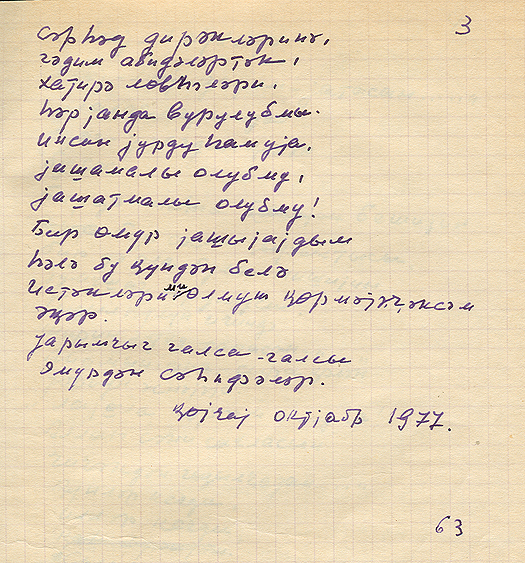 3
сәрһәд дирәкләринә,
гәдим абидәләртәк,
хатирә ловһәләри.
һәр јанда вурулубмы.
Инсан јурду һамуја,
јашамалы олубму,
јашатмалы олубму!
Бир өмүр јашыјајдым
һәлә бу ҝүндән белә
Истәкләрими өлмүш ҝөрмәјәҹәксәм
әҝәр.
Јарымчыг галса-галсы
Өмүрдән сәһифәләр.
Ҝөјчај октјабр 1977.
63